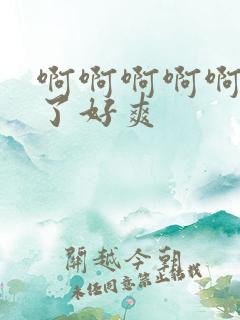 啊啊啊啊啊
了好爽
關越今朝
未经同意禁止转载